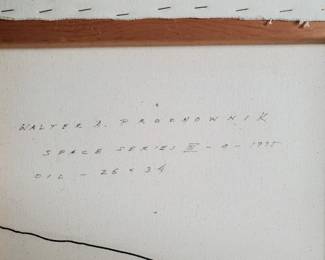 WALTER A. PROCHOWNIK
SPACE SERIES III - 9 - 1995
OIL - 26 x 34